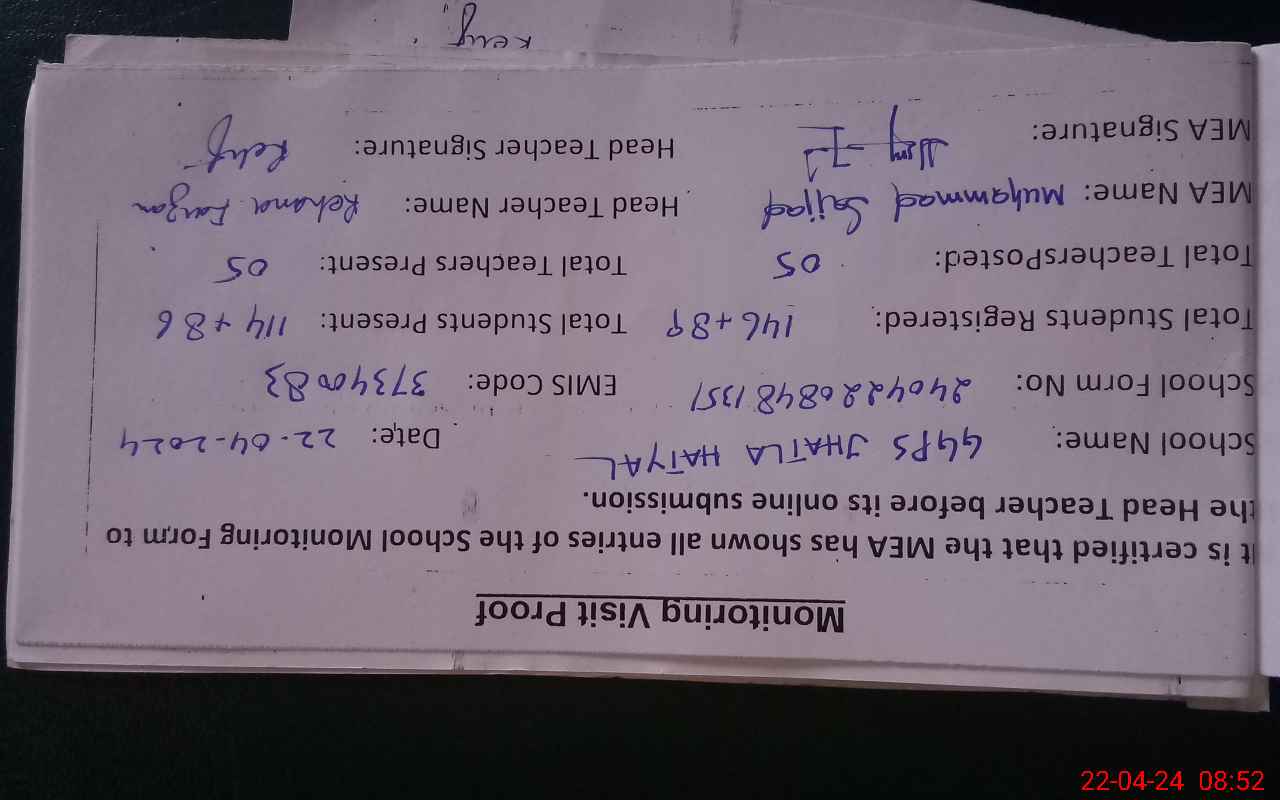 Monitoring Visit Proof
It is certified that the MEA has shown all entries of the School Monitoring Form to
the Head Teacher before its online submission.
School Name: GGPS JHATLA HATYAL Date: 22-04-2024
School Form No: 24042208481351 EMIS Code: 37340083
Total Students Registered: 146+89 Total Students Present: 114+86
Total TeachersPosted: 05 Total Teachers Present: 05
MEA Name: Muhammad Sajjad Head Teacher Name: Rehana
MEA Signature: Head Teacher Signature:
22-04-24 08:52